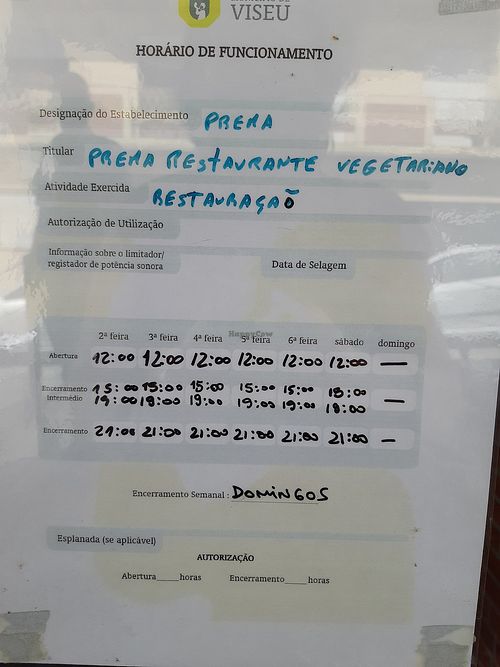 VISEU
HORÁRIO DE FUNCIONAMENTO
Designação do Estabelecimento PREMA
Titular PREMA RESTAURANTE VEGETARIANO
Atividade Exercida RESTAURAÇÃO
Autorização de Utilização
Informação sobre o limitador/
registador de potência sonora
Data de Selagem
HappyCow
2ª feira 3ª feira 4ª feira 5ª feira 6ª feira sábado domingo
Abertura 12:00 12:00 12:00 12:00 12:00 12:00 —
Encerramento 15:00 15:00 15:00 15:00 15:00 15:00 —
Intermédio 19:00 19:00 19:00 19:00 19:00 19:00
Encerramento 21:00 21:00 21:00 21:00 21:00 21:00 —
Encerramento Semanal: DOMINGOS
Esplanada (se aplicável)
AUTORIZAÇÃO
Abertura_____horas Encerramento_____horas